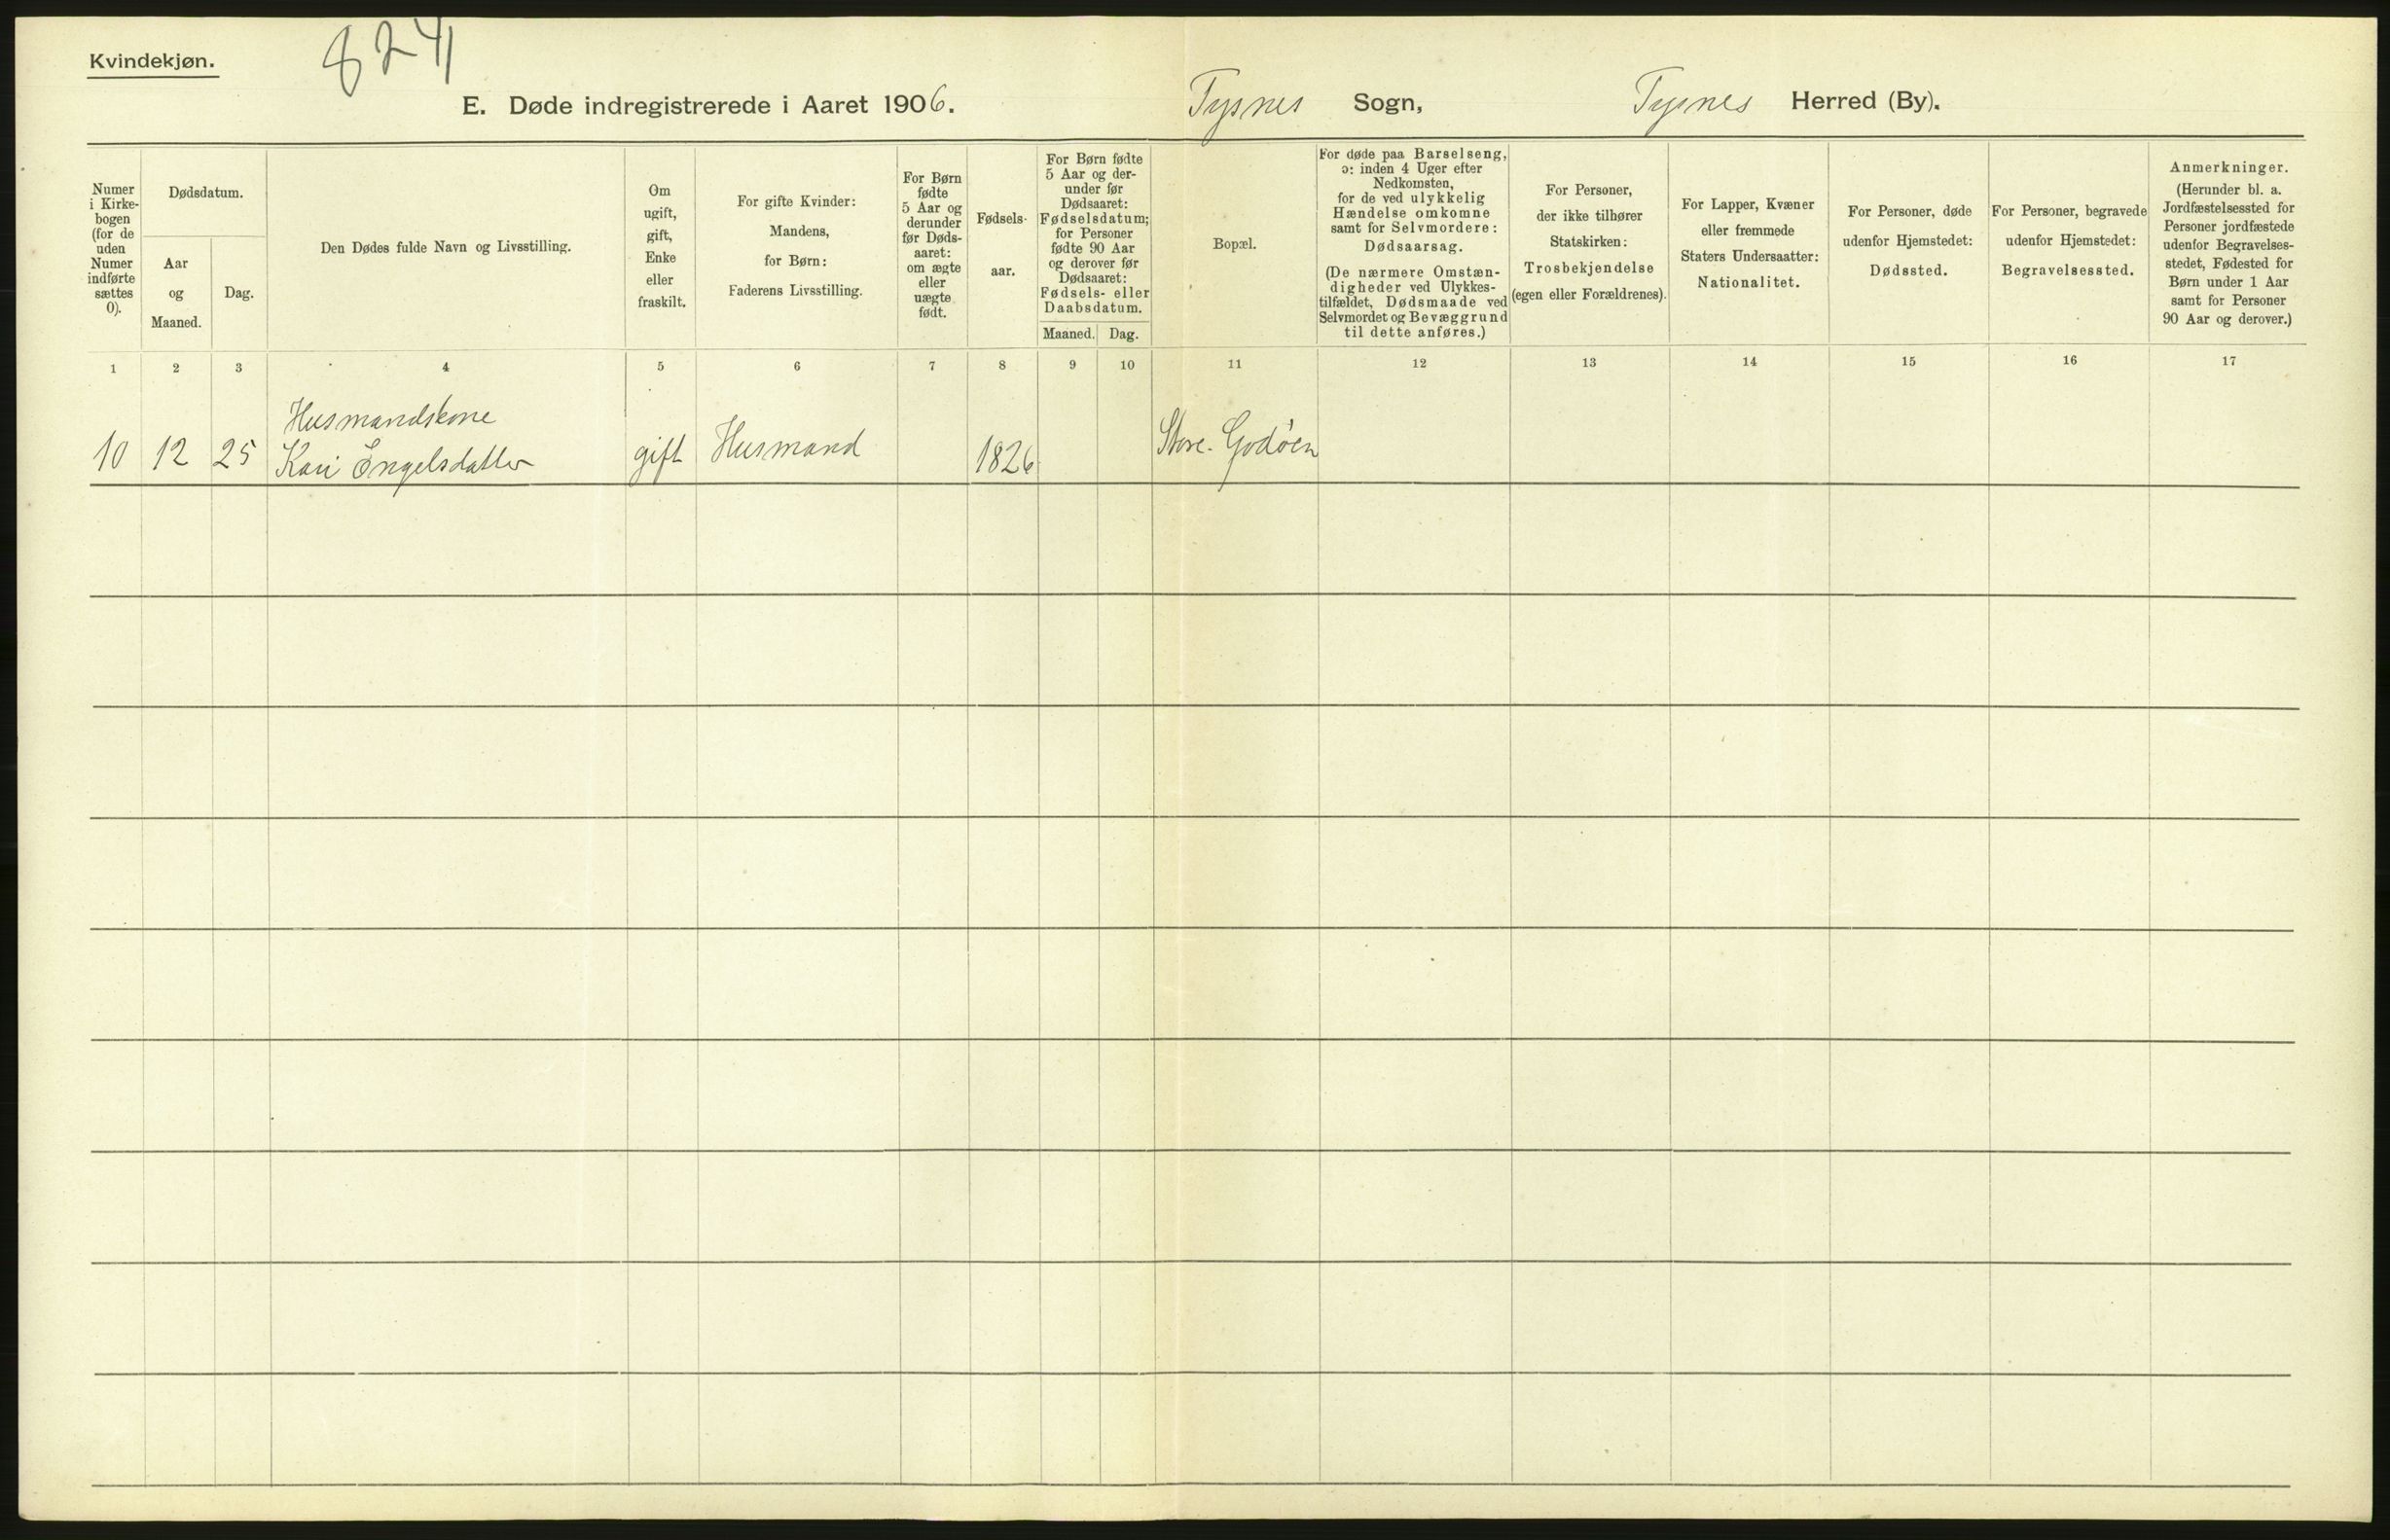 Kvindekjøn.
8241
E. Døde indregistrerede i Aaret 1906.
Tysnes Sogn,
Tysnes Herred (By).
Numer
i Kirke-
bogen
(for de
uden
Numer
indførte
sættes
0).
Dødsdatum.
Aar
og
Maaned.
Dag.
Den Dødes fulde Navn og Livsstilling.
Om
ugift,
gift,
Enke
eller
fraskilt.
For gifte Kvinder:
Mandens,
for Børn:
Faderens Livsstilling.
For Børn
fødte
5 Aar og
derunder
før Døds-
aaret:
om ægte
eller
uægte
født.
Fødsels-
aar.
For Børn fødte
5 Aar og der-
under før
Dødsaaret:
Fødselsdatum;
for Personer
fødte 90 Aar
og derover før
Dødsaaret:
Fødsels- eller
Daabsdatum.
Maaned. Dag.
Bopæl.
For døde paa Barselseng,
ɔ: inden 4 Uger efter
Nedkomsten,
for de ved ulykkelig
Hændelse omkomne
samt for Selvmordere:
Dødsaarsag.
(De nærmere Omstæn-
digheder ved Ulykkes-
tilfældet, Dødsmaade ved
Selvmordet og Bevæggrund
til dette anføres.)
For Personer,
der ikke tilhører
Statskirken:
Trosbekjendelse
(egen eller Forældrenes).
For Lapper, Kvæner
eller fremmede
Staters Undersaatter:
Nationalitet.
For Personer, døde
udenfor Hjemstedet:
Dødssted.
For Personer, begravede
udenfor Hjemstedet:
Begravelsessted.
Anmerkninger.
(Herunder bl. a.
Jordfæstelsessted for
Personer jordfæstede
udenfor Begravelses-
stedet, Fødested for
Børn under 1 Aar
samt for Personer
90 Aar og derover.)
1 2 3 4 5 6 7 8 9 10 11 12 13 14 15 16 17
Husmandskone
10 12 25 Kari Engelsdatter gift Husmand 1826 Store-Godøen